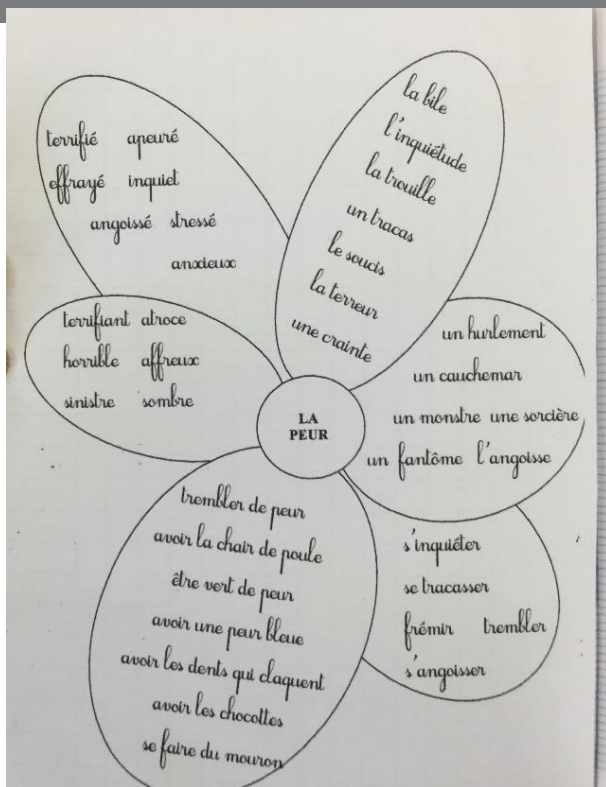 terrifié apeuré
effrayé inquiet
angoissé stressé
anxieux
la bile
l'inquiétude
la trouille
un tracas
le soucis
la terreur
une crainte
terrifiant atroce
horrible affreux
sinistre sombre
LA
PEUR
un hurlement
un cauchemar
un monstre une sorcière
un fantôme l'angoisse
trembler de peur
avoir la chair de poule
être vert de peur
avoir une peur bleue
avoir les dents qui claquent
avoir les chocottes
se faire du mouron
s'inquiéter
se tracasser
frémir trembler
s'angoisser